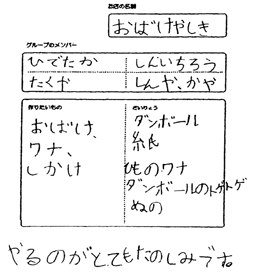 お店の名前
おばけやしき
グループのメンバー
ひでたか
しんいちろう
たくや
しんや、かや
作りたいもの
ざいりょう
おばけ、
ワナ、
しかけ
ダンボール
紙
ひものワナ
ダンボールのトゲトゲ
ぬの
やるのがとてもたのしみでね